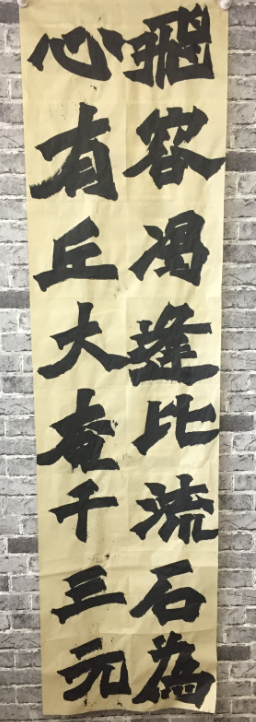 飛容渴逢比流石為
心有丘大奄千三元